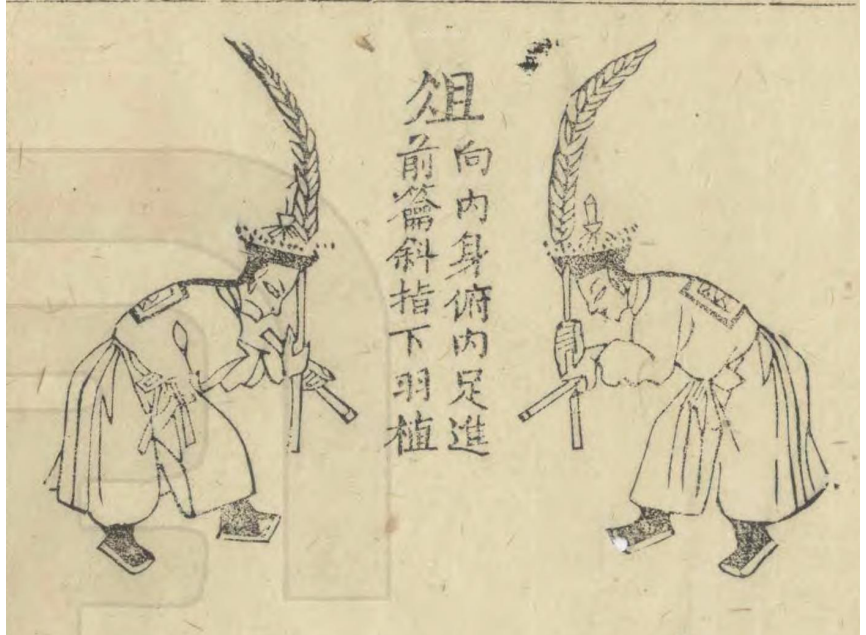 俎
向内身俯内足進
前籥斜指下羽植